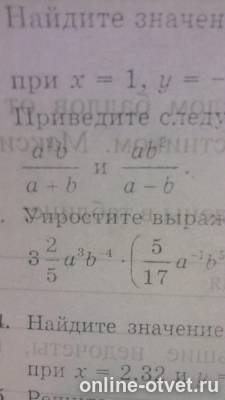 Найдите значен
при x = 1, y = –
Приведите следу
a²b / (a + b) и ab² / (a – b).
Упростите выраж
3 2/5 a³b⁻⁴ · ( 5/17 a⁻¹b⁵
Найдите значение
при x = 2,32 и
online-otvet.ru